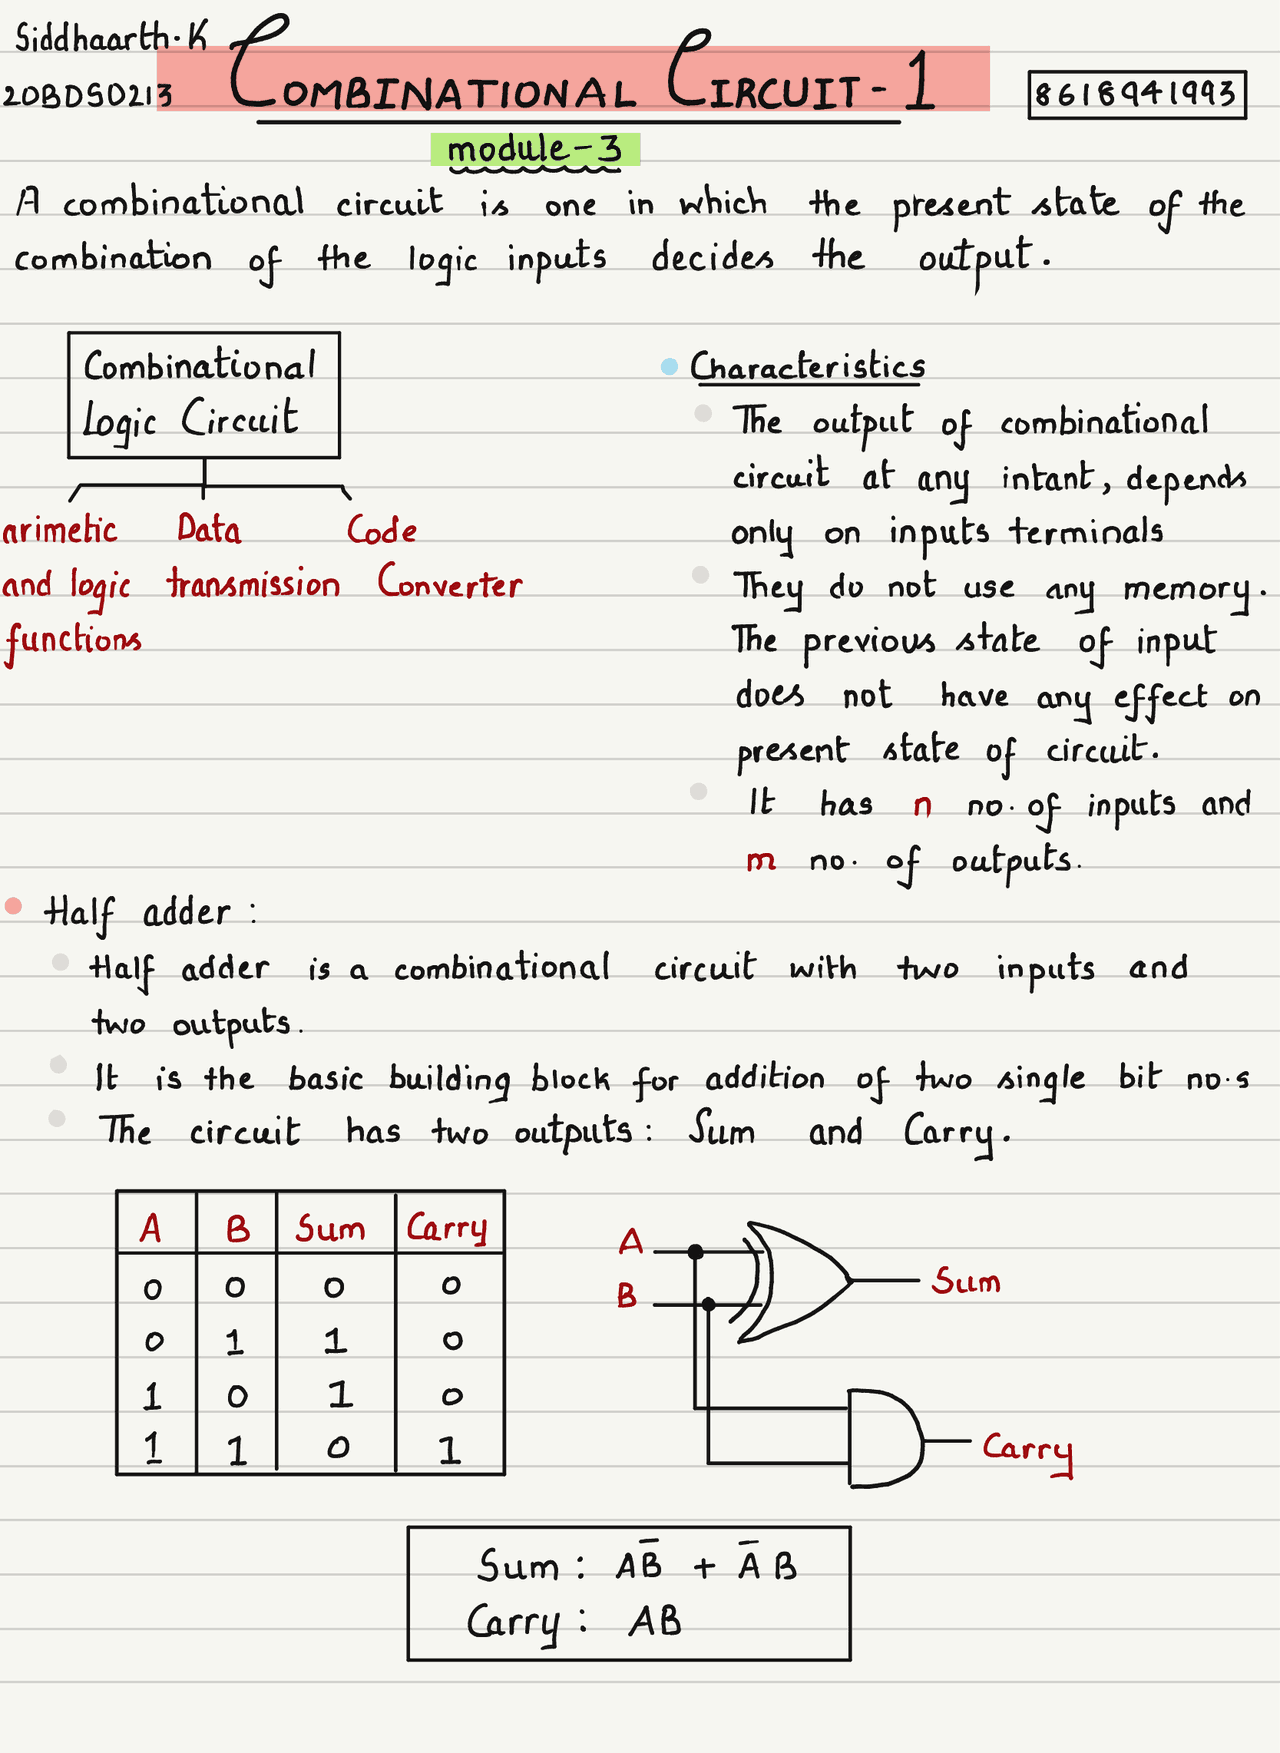 Siddhaarth.K
20BDS0213
COMBINATIONAL CIRCUIT-1
8618941993
module-3
A combinational circuit is one in which the present state of the
combination of the logic inputs decides the output.
Combinational
Logic Circuit
arimetic Data Code
and logic transmission Converter
functions
Characteristics
The output of combinational
circuit at any intant, depends
only on inputs terminals
They do not use any memory.
The previous state of input
does not have any effect on
present state of circuit.
It has n no. of inputs and
m no. of outputs.
Half adder :
Half adder is a combinational circuit with two inputs and
two outputs.
It is the basic building block for addition of two single bit no.s
The circuit has two outputs: Sum and Carry.
A B Sum Carry
0 0 0 0
0 1 1 0
1 0 1 0
1 1 0 1
A
B
Sum
Carry
Sum : AB̅ + A̅ B
Carry : AB